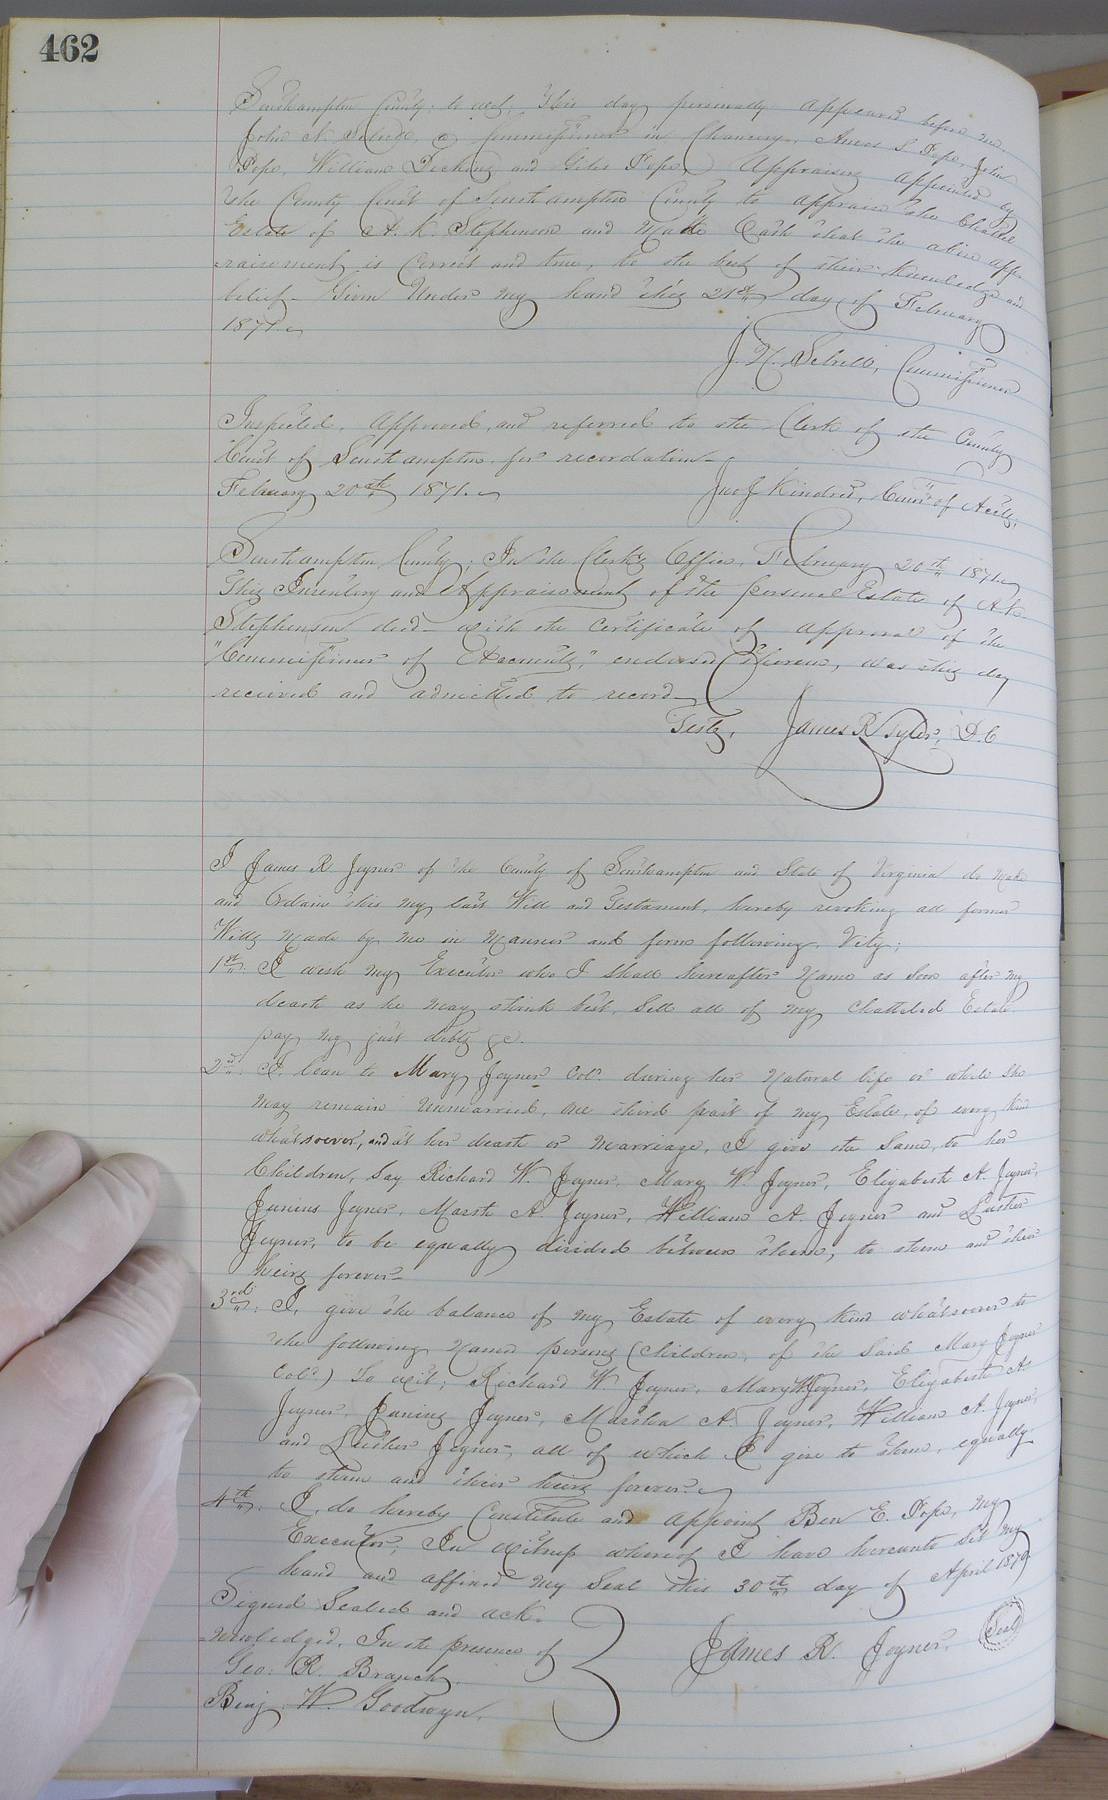 462
Southampton County; to wit; This day personally appeared before me
John N. Sebrell, a Commissioner in Chancery, Amos S. Pope, John
Pope, William Decking and Giles Pope, Appraisers appointed by
the County Court of Southampton County to appraise the Chattel
Estate of A. K. Stephenson and Made Oath that the above app-
raisement is Correct and true, to the best of their Knowledge and
belief. Given Under my hand this 21st day of February
1871.
J. N. Sebrell, Commissioner
Inspected, Approved, and referred to the Clerk of the County
Court of Southampton for recordation
February 20th 1871.
Jno J Kindred, Comr of Accts.
Southampton County; In the Clerks Office, February 20th 1871.
This Inventory and Appraisement of the personal Estate of A. K.
Stephenson decd with the Certificate of approval of the
"Commissioner of Accounts," endorsed thereon, was this day
received and admitted to record
Teste, James R Tyler, D.C
I James R Joyner of the County of Southampton and State of Virginia do make
and Ordain this my last Will and Testament, hereby revoking all former
Wills made by me in manner and form following, Vity;
1st: I wish my Executor who I shall hereafter Name as soon after my
death as he may think best, Sell all of my Chatteled Estate
pay my just debts &c.
2nd: I loan to Mary Joyner Cold. during her Natural life or while she
may remain Unmarried, one third part of my Estate, of every Kind
whatsoever, and at her death or marriage, I give the Same, to her
Children, Say Richard W. Joyner, Mary W. Joyner, Elizabeth A. Joyner,
Junius Joyner, Marth A. Joyner, William A. Joyner and Luther
Joyner, to be equally divided between them, to them and their
heirs forever
3rd: I, give the balance of my Estate of every Kind whatsoever to
the following Named persons (Children, of the Said Mary Joyner
Cold.) To wit; Richard W. Joyner, Mary W. Joyner, Elizabeth A.
Joyner, Junius Joyner, Martha A. Joyner, William A. Joyner,
and Luther Joyner, all of which I give to them, equally
to them and their heirs forever.
4th: I, do hereby Constitute and appoint Ben E. Pope, my
Executor, In witness whereof I have hereunto set my
hand and affixed my Seal this 30th day of April 1870
Signed Sealed and ack-
nowledged, In the presence of
James R. Joyner. Seal
Geo: R. Branch.
Benj. W. Goodwyn.